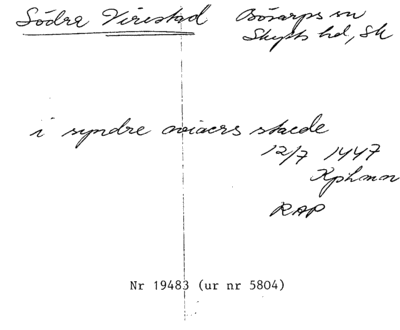 Södra Virestad Bösarps sn
Skytts hd, Sk
i syndre wiaers skede
12/7 1447
Kphmn
RAP
Nr 19483 (ur nr 5804)